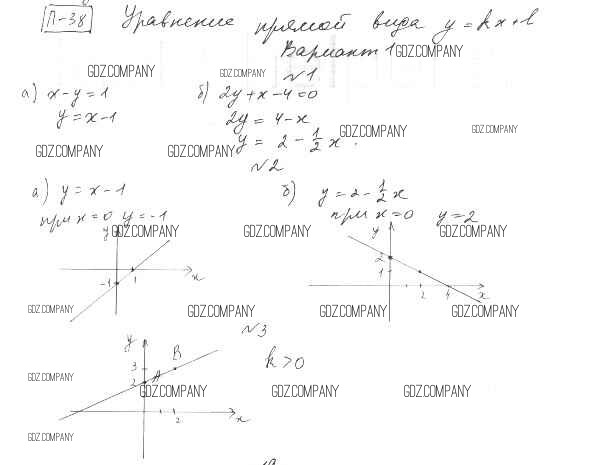 П-38 Уравнение прямой вида y = kx + l
Вариант 1 GDZ.COMPANY
GDZ.COMPANY GDZ.COMPANY
№1
а) x - y = 1 б) 2y + x - 4 = 0
y = x - 1 2y = 4 - x
y = 2 - 1/2 x. GDZ.COMPANY GDZ.COMPANY
GDZ.COMPANY GDZ.COMPANY
№2
а) y = x - 1 б) y = 2 - 1/2 x
при x = 0 y = -1 при x = 0 y = 2
y GDZ.COMPANY GDZ.COMPANY y GDZ.COMPANY
2
1
-1 1 x 2 4 x
GDZ.COMPANY GDZ.COMPANY GDZ.COMPANY GDZ.COMPANY
№3
y B k > 0
3
GDZ.COMPANY 2 A
GDZ.COMPANY GDZ.COMPANY GDZ.COMPANY
2 x
GDZ.COMPANY